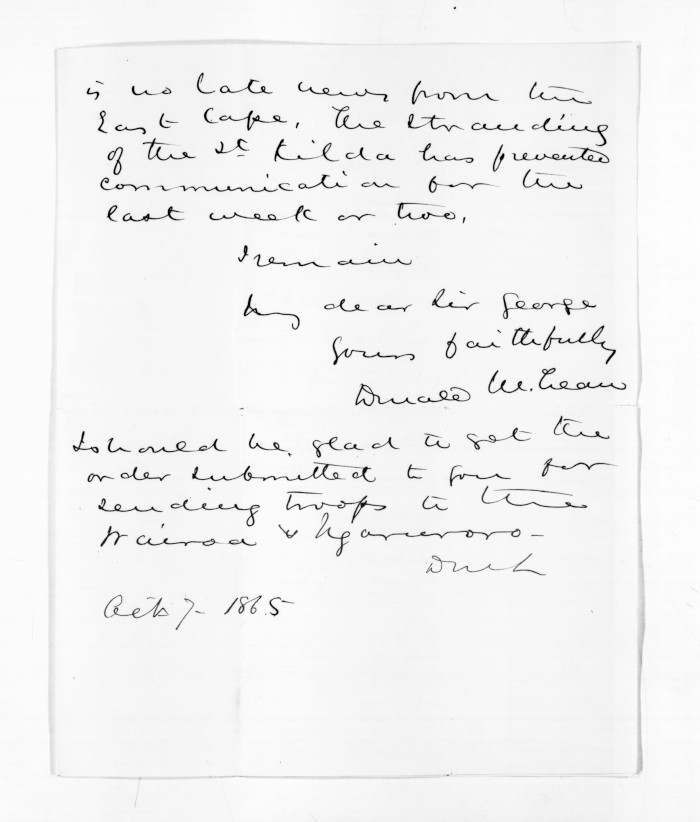 is no late news from the
East Cape, The stranding
of the St. Kilda has prevented
communication for the
last week or two.
I remain
My dear Sir George
Yours faithfully
Donald McLean
I should be glad to get the
order submitted to you for
sending troops to the
Wairoa & Ngaruroro -
DMcL
Oct 7 - 1865